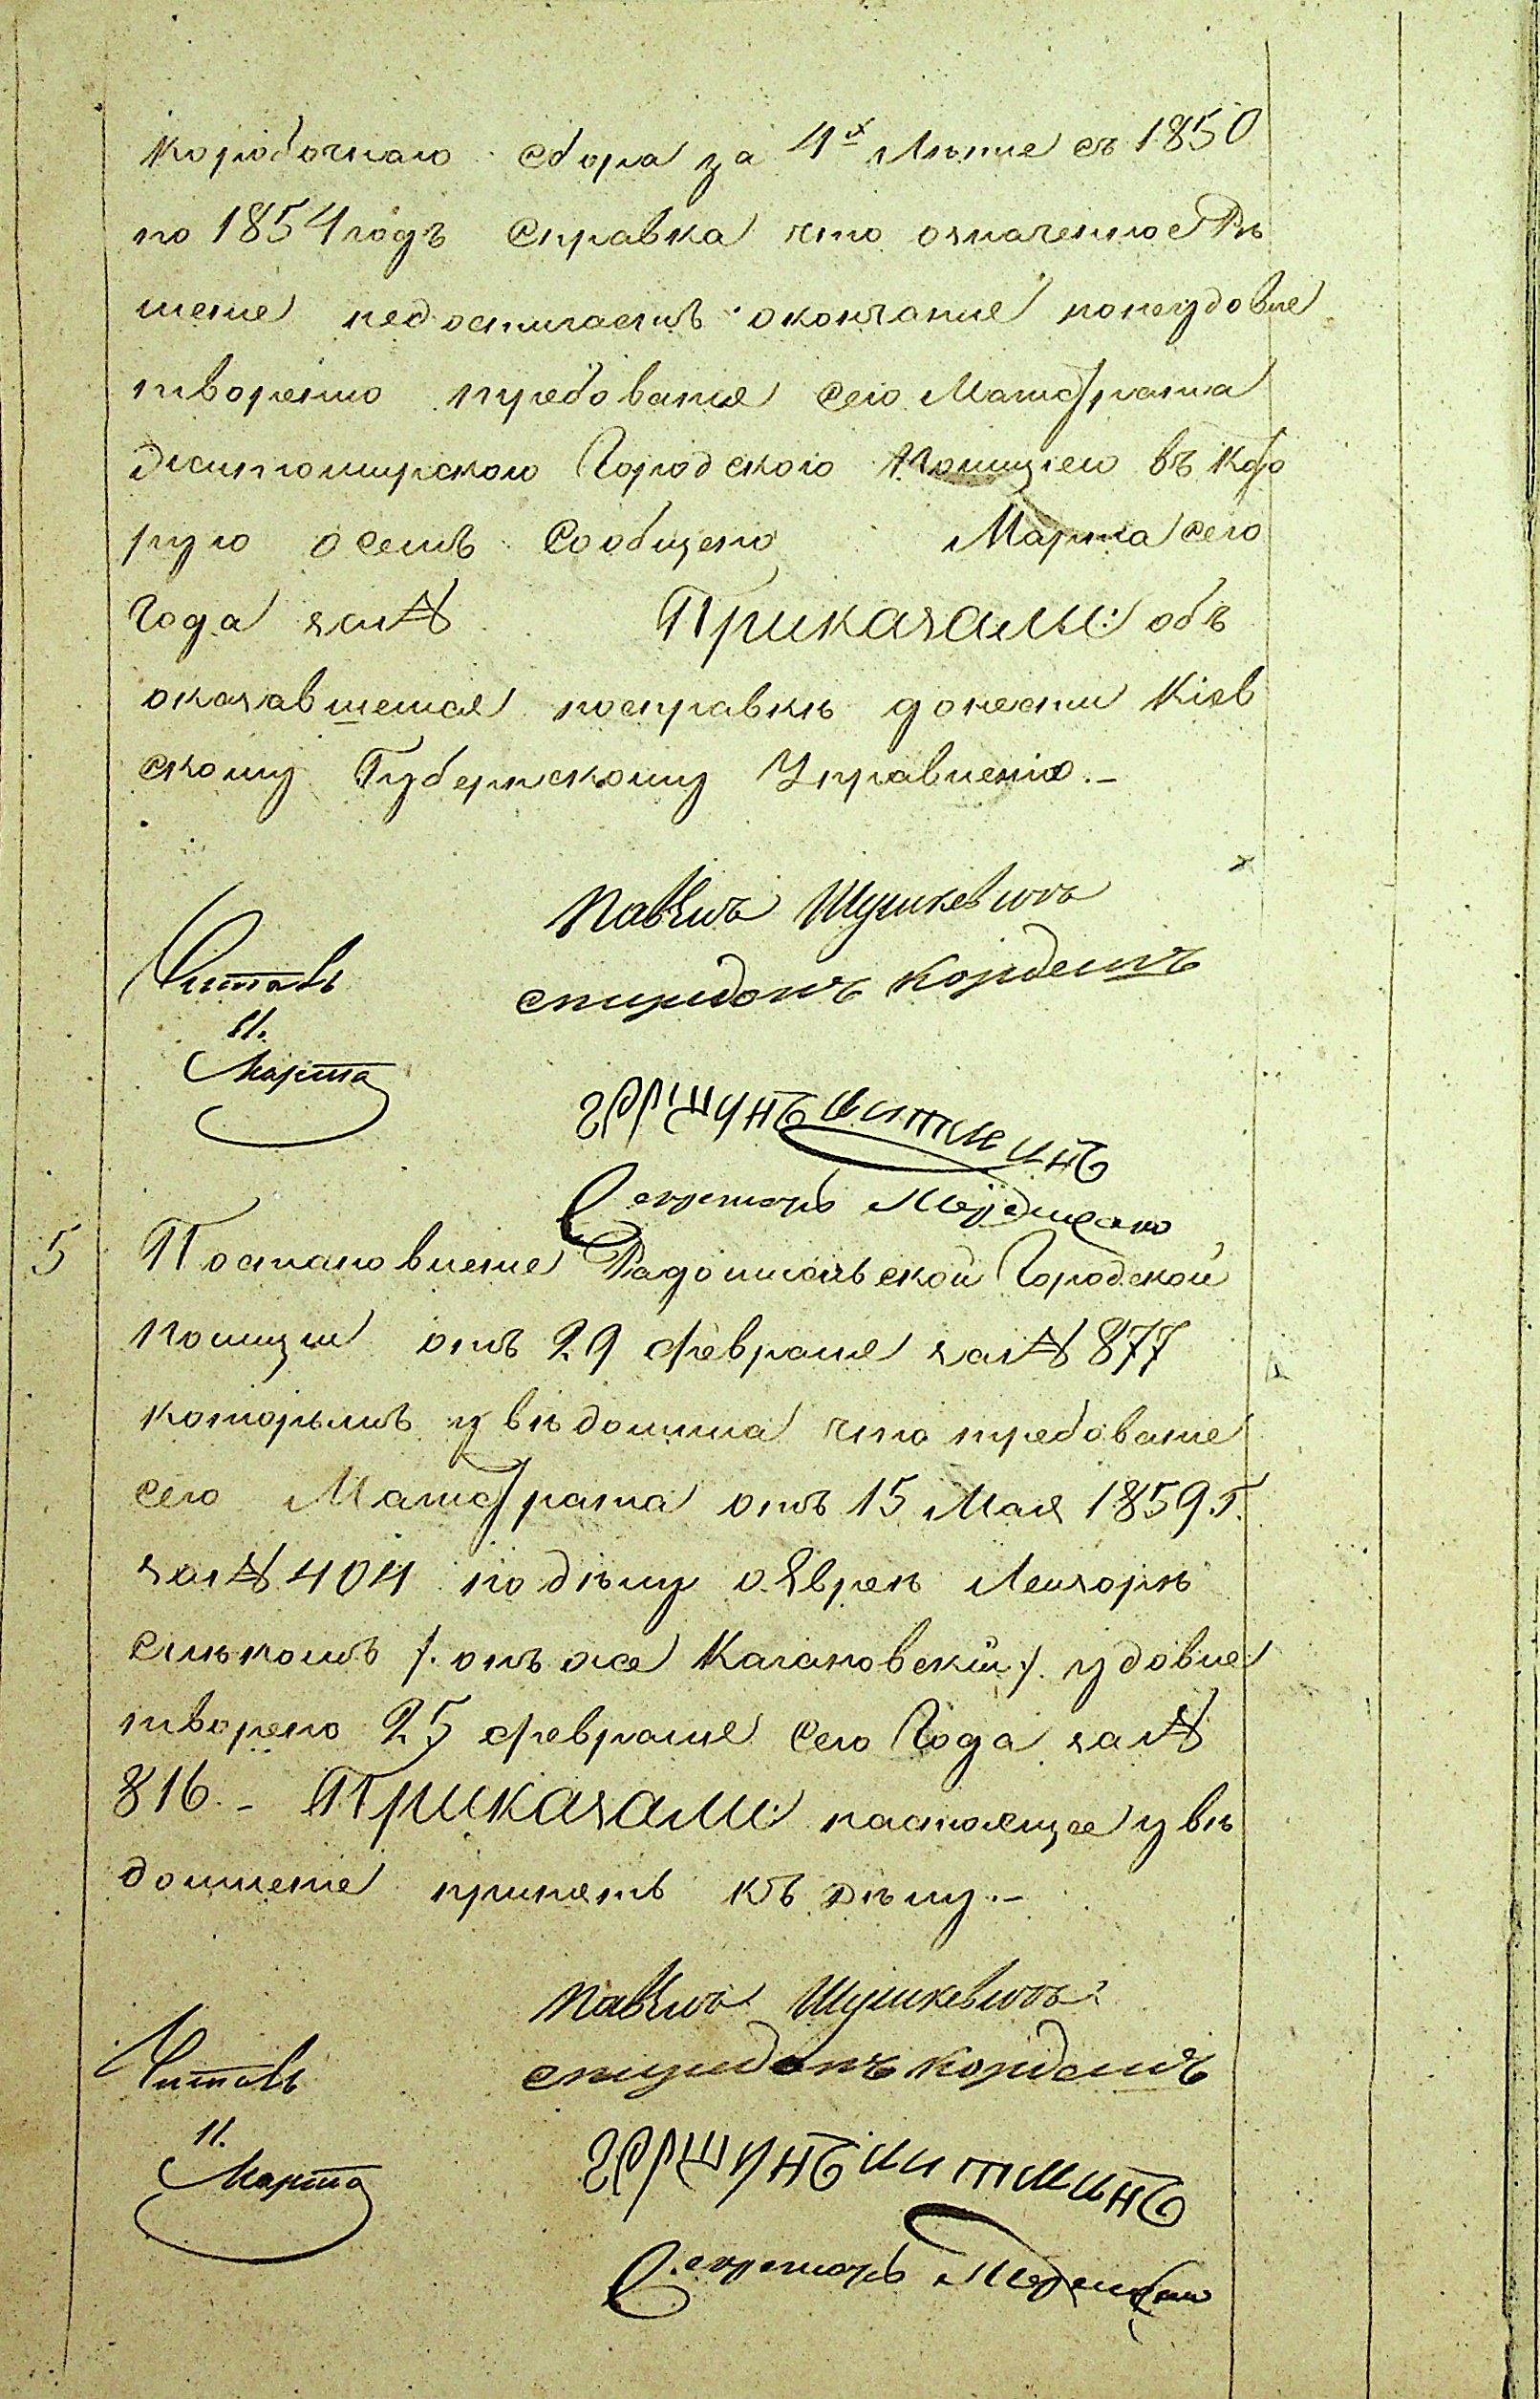 коробочнаго сбора за 4х Лѣтіе съ 1850
по 1854 годъ справка что означенное Рѣ
шеніе недостигаетъ окончанія понеудовле
творенію требованія сего Магистрата
Житомирскою Городскою Полиціею въ Кото
рую осемъ Сообщено Марта сего
Года за №
Приказали: объ
оказавшемся посправкѣ донести Кіев
скому Губернскому Управленію.-
Павелъ Шушкевичъ
Читалъ
спиридонъ кордешъ
11.
Марта
гершунъ
Секретарь
5 Постановленіе Радомысльской Городской
Полиціи отъ 29 февраля за № 877
которымъ увѣдомила что требованіе
сего Магистрата отъ 15 Мая 1859 г.
за № 404 по дѣлу о Евреѣ Лейзорѣ
онъ же Кагановскій ./. удовле
творено 25 февраля сего Года за №
816.- Приказали: настоящее увѣ
домленіе принять къ дѣлу.-
Павелъ Шушкевичъ
Читалъ
спиридонъ кордешъ
11.
Марта
гершунъ
Секретарь